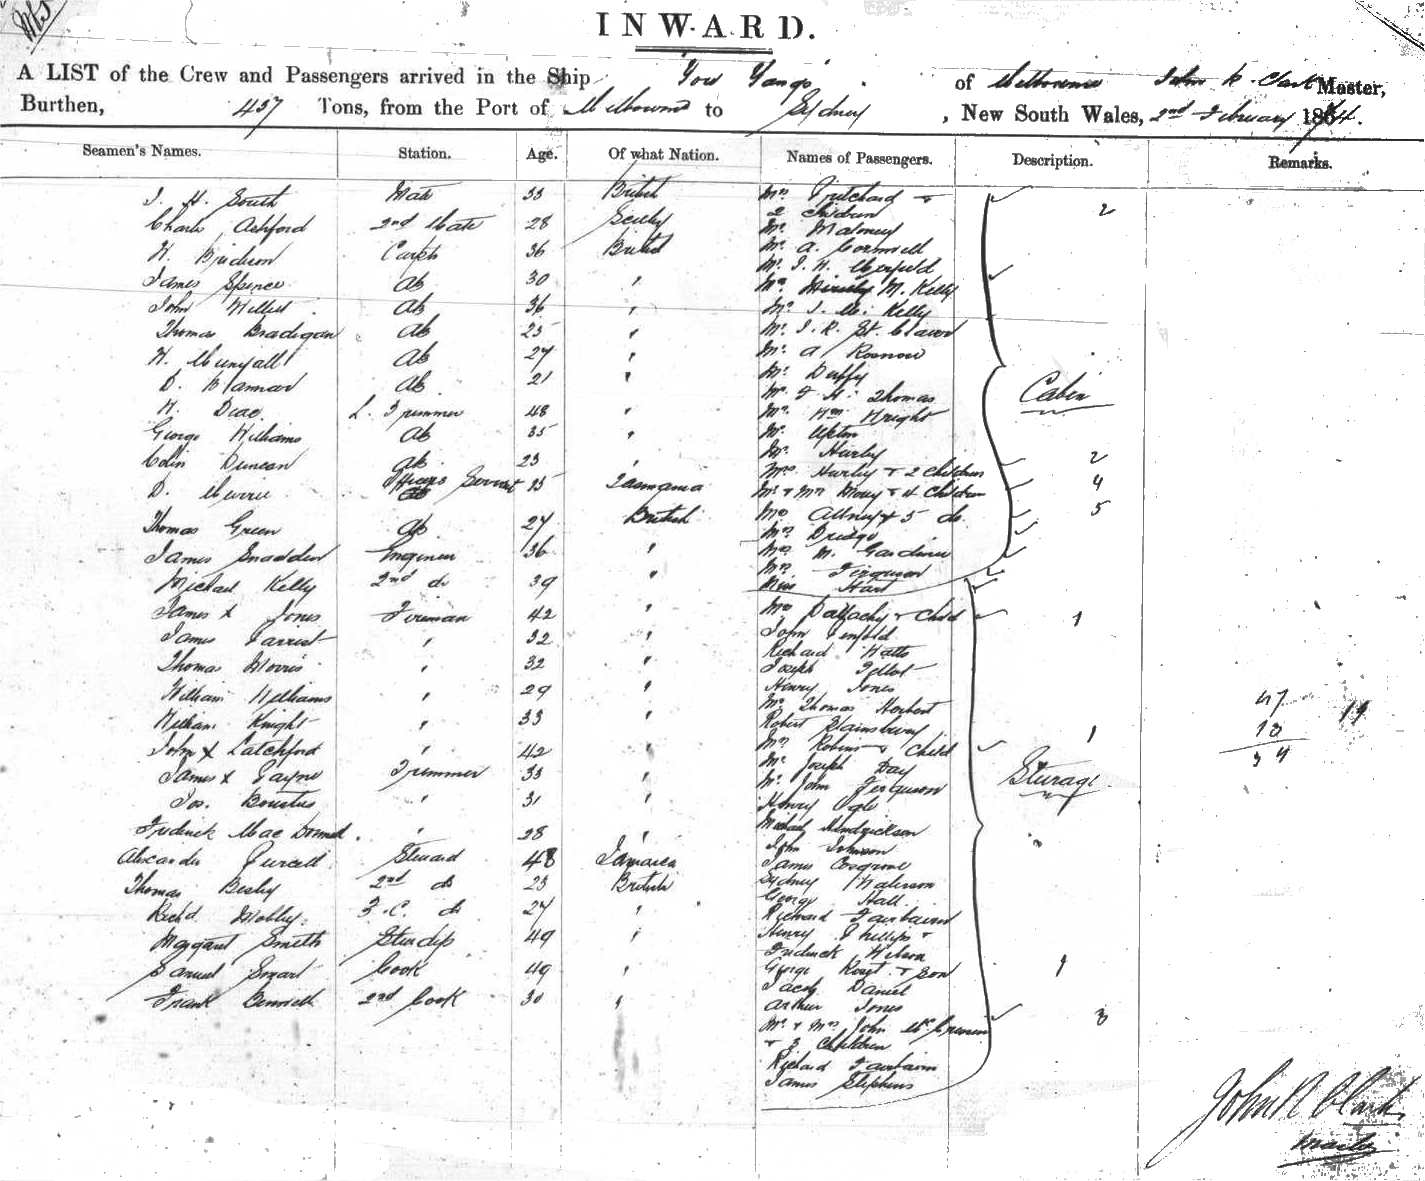 INWARD.
A LIST of the Crew and Passengers arrived in the Ship You Yangs of Melbourne John R. Clark Master,
Burthen, 457 Tons, from the Port of Melbourne to Sydney, New South Wales, 2nd February 1874.
Seamen's Names. Station. Age. Of what Nation. Names of Passengers. Description. Remarks.
J. H. South Mate 33 British
Charles Ashford 2nd Mate 28
H. Carptr 36 British
James Spence Ab 30 "
John Ab 36 "
Thomas Bradigan Ab 25 "
H. Ab 27 "
D. Ab 21 "
H. L. Trimmer 48 "
George Williams Ab 35 "
Colin Duncan ab 23 "
D. Officers Servant 25 Tasmania
Thomas Green ab 27 British
James Engineer 36 "
Michael Kelly 2nd do 39 "
James x Jones Fireman 42 "
James " 32 "
Thomas Morris " 32 "
William Williams " 29 "
William Knight " 33 "
John x Latchford " 42 "
James x Payne Trimmer 33 "
Jos. " 31 "
Frederick MacDonnell " 28 "
Alexander Purcell Steward 48 Jamaica
Thomas Besley 2nd do 23 British
Richd Mobley F.C. do 27 "
Margaret Smith Stewdss 49 "
Samuel Smart Cook 49 "
Frank Bennett 2nd Cook 30 "
Mrs Pritchard +
2 Children 2
Mr. Maloney
Mr. A. Cornwell
Mr. J. H.
Mr. M. Kelly
Mr. J. Mc. Kelly
Mr. J. R. St. Clair
Mr. A
Mr. Duffy
Mr. F. H. Thomas
Mr. Wm Wright
Mr. Upton
Mr. Hurley
Mrs Hurley + 2 Children 2
Mr + Mrs + 4 Children 4
Mrs + 5 do. 5
Mrs Bridge
Mrs M. Gardiner
Mrs Ferguson
Miss Hart
Cabin
Mrs + Child 1
John Penfold
Richard Watts
Joseph
Henry Jones
Mr Thomas Herbert
Robert Stainsbury
Mrs Robins + Child 1
Mr. Joseph Day
Mr. John Ferguson
Henry Ogle
Michael Hendrickson
John Johnson
James Cosgrove
Sydney
George Hall
Richard Fairbairn
Henry Phillips +
Frederick Wilson
George + Son 1
Jacob Daniel
Arthur Jones
Mr. + Mrs John
+ 3 Children 3
Richard Fairbairn
James Stephens
Sturage
47
19
John R Clark
Master